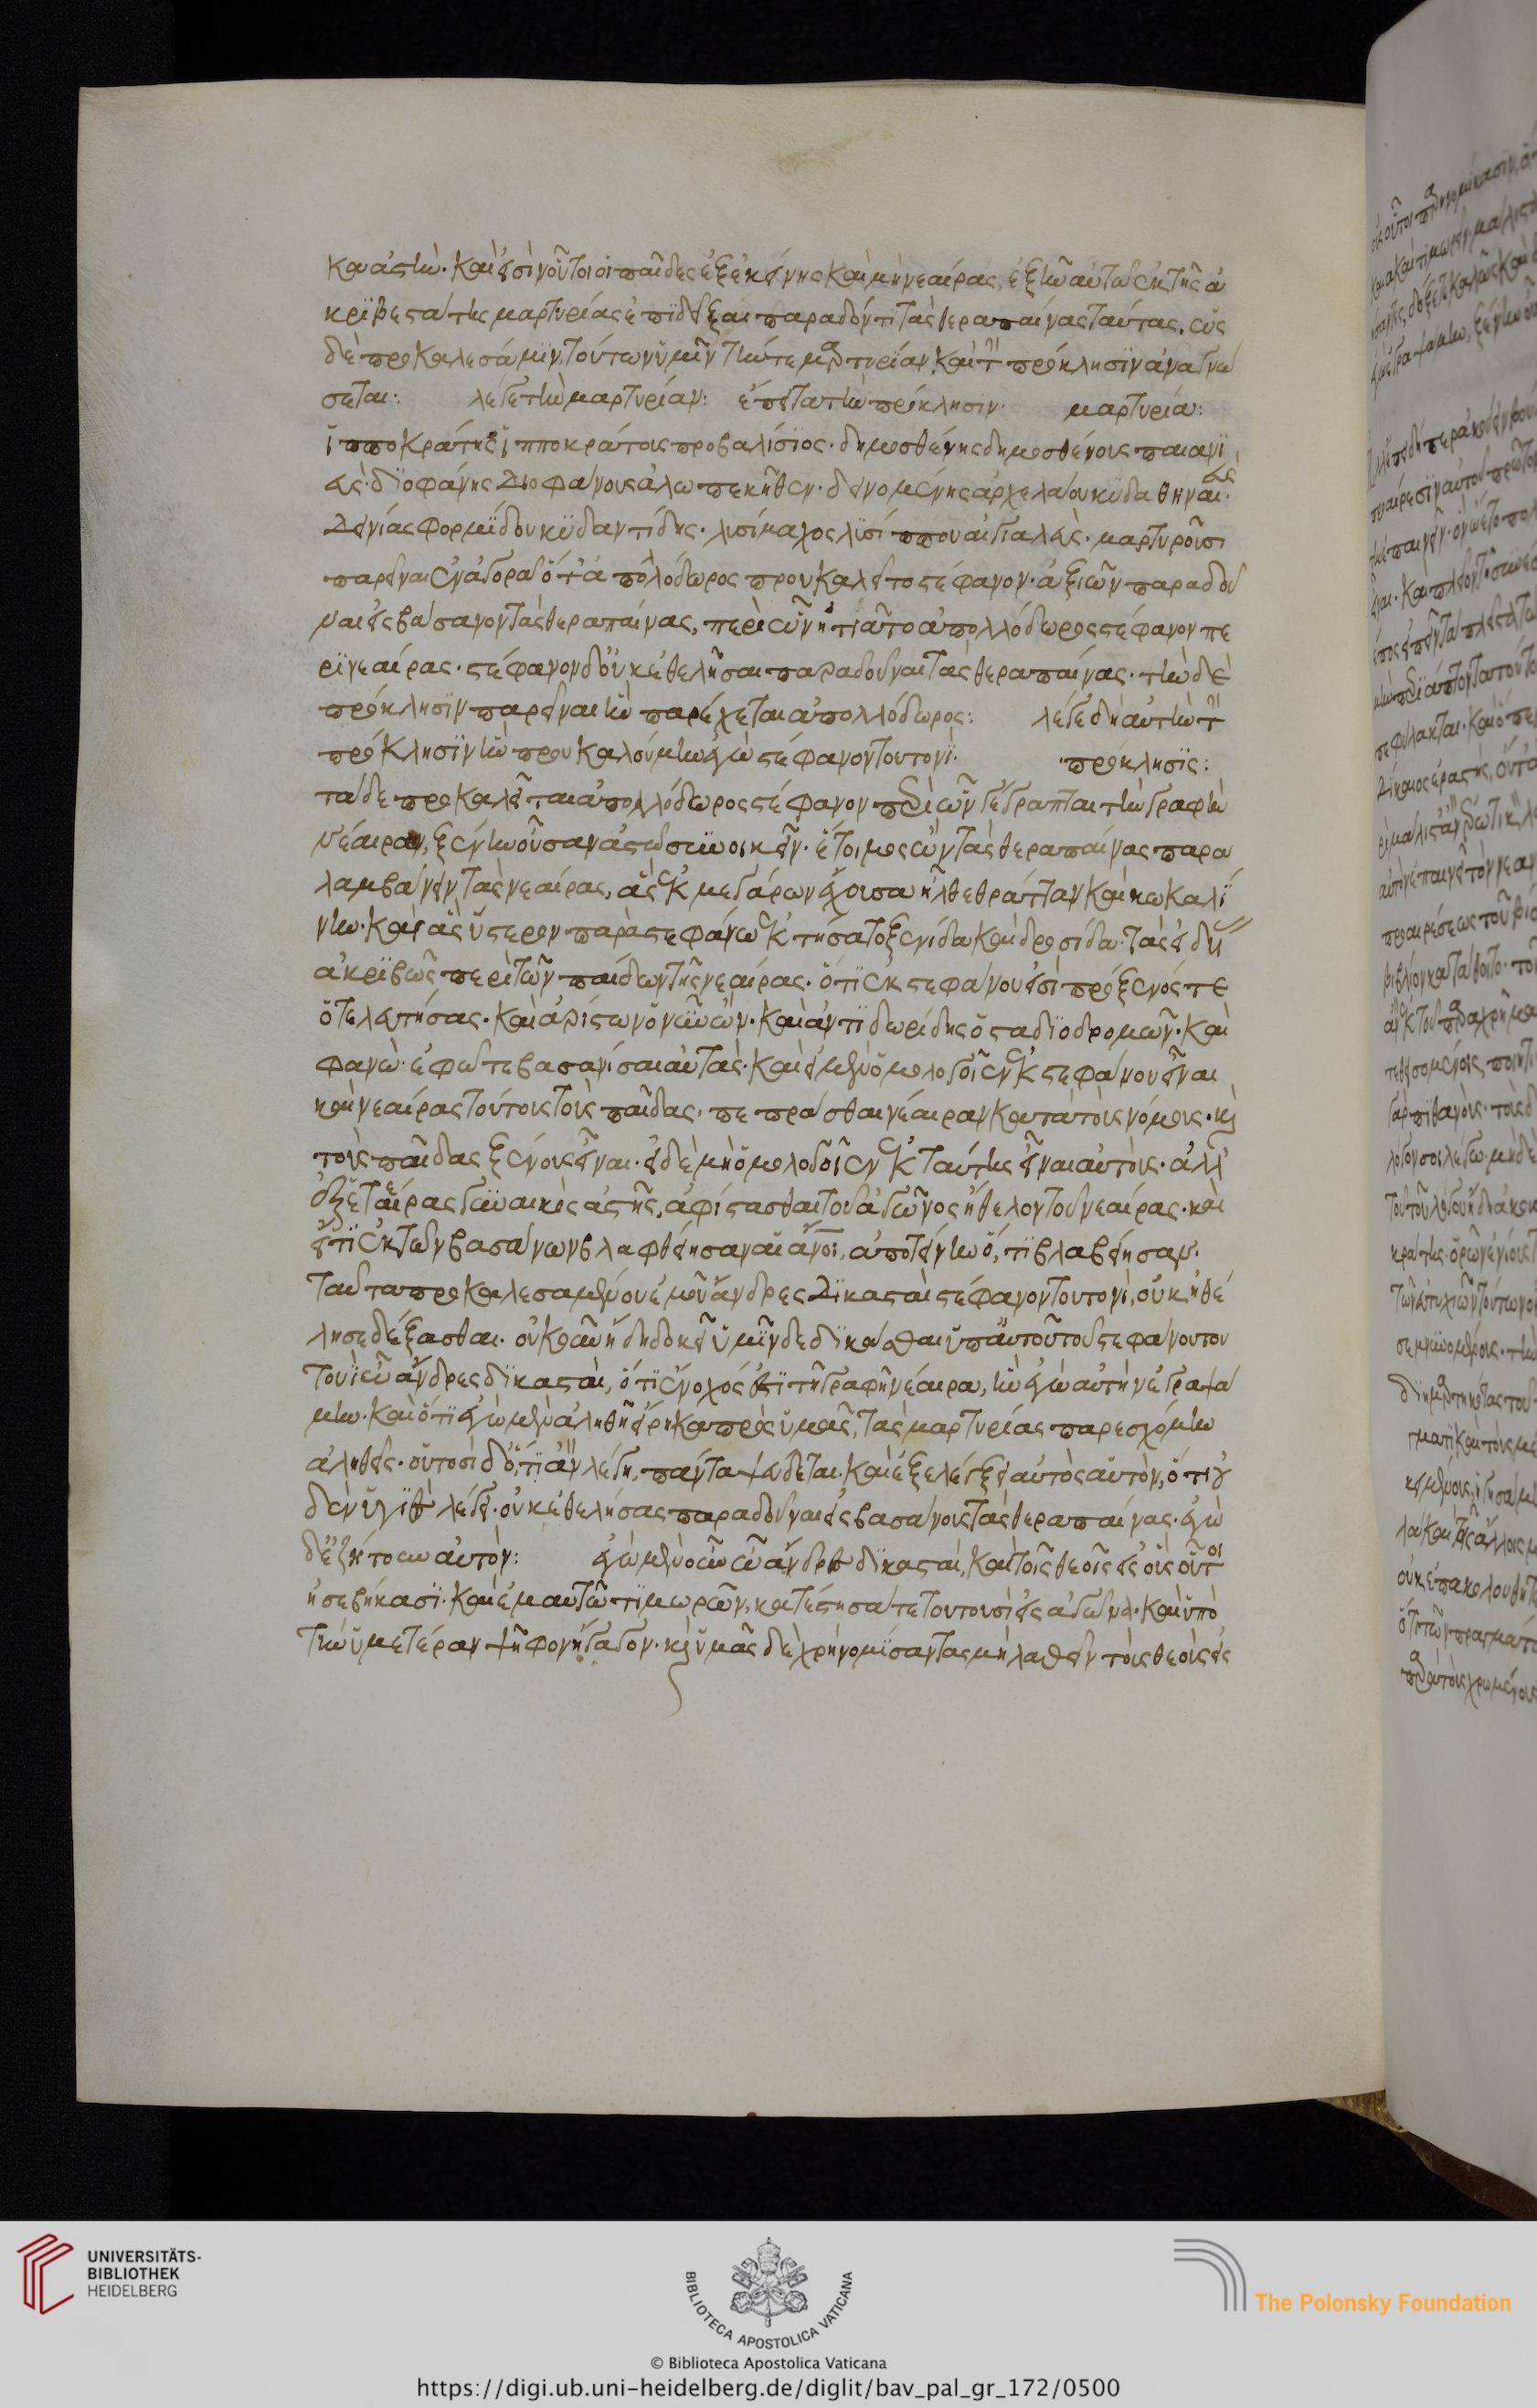 καὶ ἀστὴν· καὶ εἰσὶν οὗτοι οἱ παῖδες ἐξ ἐκείνης καὶ μὴ νεαίρας, ἐξῆν αὐτῶ ἐκ τῆς ἀ
κριβεστάτης μαρτυρίας ἐπιδεῖξαι παραδόντι τὰς θεραπαίνας ταύτας. ὡς
δὲ προκαλεσάμην, τούτων ὑμῖν τήν τε μαρτυρίαν καὶ τὴν πρόκλησιν ἀναγνώ
σεται: λέγε τὴν μαρτυρίαν: ἔπειτα τὴν πρόκλησιν· μαρτυρία:
ἱπποκράτης ἱπποκράτους προβαλίσιος· δημοσθένης δημοσθένους παιανι
εὺς· διοφάνης διοφάνους ἀλωπεκῆθεν· δεινομένης ἀρχελάου κυδαθηναιεὺς·
δεινίας φορμίδου κυδαντίδης· λυσίμαχος λυσίππου αἰγιαλεὺς· μαρτυροῦσι
παρεῖναι ἐν ἀγορᾶ ὅτ' ἀπολόδωρος προυκαλεῖτο στέφανον· ἀξιῶν παραδοῦ
ναι εἰς βάσανον τὰς θεραπαίνας, περὶ ὧν ἠτιᾶτο ἀπολλόδωρος στέφανον πε
ρὶ νεαίρας· στέφανον δ' οὐκ ἐθελῆσαι παραδοῦναι τὰς θεραπαίνας· τὴν δὲ
πρόκλησιν παρεῖναι ἣν παρέχεται ἀπολλόδωρος: λέγε δὴ αὐτὴν τὴν
πρόκλησιν ἣν προυκαλούμην ἐγὼ στέφανον τουτονί· πρόκλησις:
τάδε προκαλεῖται ἀπολλόδωρος στέφανον περὶ ὧν γέγραπται τὴν γραφὴν
νέαιραν, ξένην οὖσαν ἀστῶ συνοικεῖν· ἕτοιμος ὢν τὰς θεραπαίνας παρα
λαμβάνειν τὰς νεαίρας, ἃς ἐκ μεγάρων ἔχουσα ἦλθε θράτταν καὶ κωκαλί
νην· καὶ ἃς ὕστερον παρὰ στεφάνω ἐκτήσατο ξενίδα καὶ δροσίδα· τὰς εἰδυί
ας ἀκριβῶς περὶ τῶν παίδων τῆς νεαίρας· ὅτι ἐκ στεφάνου εἰσὶ πρόξενός τε
ὁ τελευτήσας· καὶ ἀρίστων ὁ νῦν ὢν· καὶ ἀντιδωρίδης ὁ σταδιοδρομῶν· καὶ
φανὼ· ἐφ' ὧτε βασανίσαι αὐτὰς· καὶ εἰ μὲν ὁμολογοῖεν ἐκ στεφάνου εἶναι
καὶ νεαίρας τούτους τοὺς παῖδας, πεπρᾶσθαι νέαιραν κατὰ τοὺς νόμους· καὶ
τοὺς παῖδας ξένους εἶναι· εἰ δὲ μὴ ὁμολογοῖεν ἐκ ταύτης εἶναι αὐτοὺς· ἀλλ'
ἐξ ἑτέρας γυναικὸς ἀστῆς, ἀφίστασθαι τοῦ ἀγῶνος ἤθελον τοῦ νεαίρας· καὶ
εἴ τι ἐκ τῶν βασάνων βλαφθείησαν αἱ ἄνοι, ἀποτείνην ὅ,τι βλαβείησαν·
ταῦτα προκαλεσαμένου ἐμοῦ ἄνδρες δικασταὶ στέφανον τουτονὶ, οὐκ ἠθέ
λησε δέξασθαι· οὐκοῦν ἤδη δοκεῖ ὑμῖν δεδικάσθαι ὑπ' αὐτοῦ τοῦ στεφάνου του
τουὶ ὦ ἄνδρες δικασταὶ, ὅτι ἔνοχός ἐστι τῆ γραφῆ νέαιρα, ἣν ἐγὼ αὐτὴν ἐγραψά
μην· καὶ ὅτι ἐγὼ μὲν ἀληθῆ εἴρηκα πρὸς ὑμᾶς, τὰς μαρτυρίας παρεσχόμην
ἀληθεῖς· οὑτοσὶ δ' ὅ,τι ἂν λέγη, πάντα ψεύδεται· καὶ ἐξελέγξει αὐτὸς αὑτὸν, ὅτι οὐ
δὲν ὑγιὲς λέγει· οὐκ ἐθελήσας παραδοῦναι εἰς βασάνους τὰς θεραπαίνας· ἃς ἐγὼ
δ' ἐξήτουν αὐτὸν: ἐγὼ μὲν οὖν ὦ ἄνδρες δικασταὶ, καὶ τοῖς θεοῖς εἰς οὓς οὗτοι
ἠσεβήκασι· καὶ ἐμαυτῶ τιμωρῶν, κατέστησά τε τουτουσὶ εἰς ἀγῶνα· καὶ ὑπὸ
τὴν ὑμετέραν ψῆφον ἤγαγον· καὶ ὑμᾶς δὲ χρὴ νομίσαντας μὴ λαθεῖν τοὺς θεοὺς εἰς
UNIVERSITÄTS-
BIBLIOTHEK
HEIDELBERG
BIBLIOTECA APOSTOLICA VATICANA
The Polonsky Foundation
© Biblioteca Apostolica Vaticana
https://digi.ub.uni-heidelberg.de/diglit/bav_pal_gr_172/0500